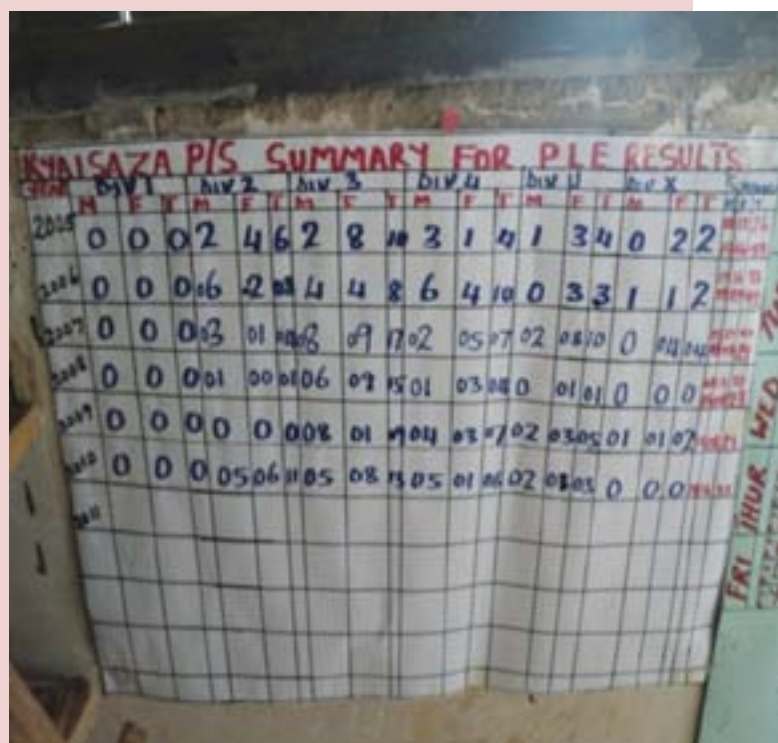 KYAISAZA P/S SUMMARY FOR PLE RESULTS
YEAR DIV 1 DIV 2 DIV 3 DIV 4 DIV U DIV X
M F T M F T M F T M F T M F T M F T
2005 0 0 0 2 4 6 2 8 10 3 1 4 1 3 4 0 2 2
2006 0 0 0 06 2 08 4 4 8 6 4 10 0 3 3 1 1 2
2007 0 0 0 03 01 04 08 09 17 02 05 07 02 08 10 0 04 04
2008 0 0 0 01 00 01 06 09 15 01 03 04 0 01 01 0 0 0
2009 0 0 0 0 0 0 08 01 04 03 07 02 03 05 01 01 02
2010 0 0 0 05 06 11 05 08 13 05 01 06 02 03 0 0 0
2011
WED
THUR
FRI